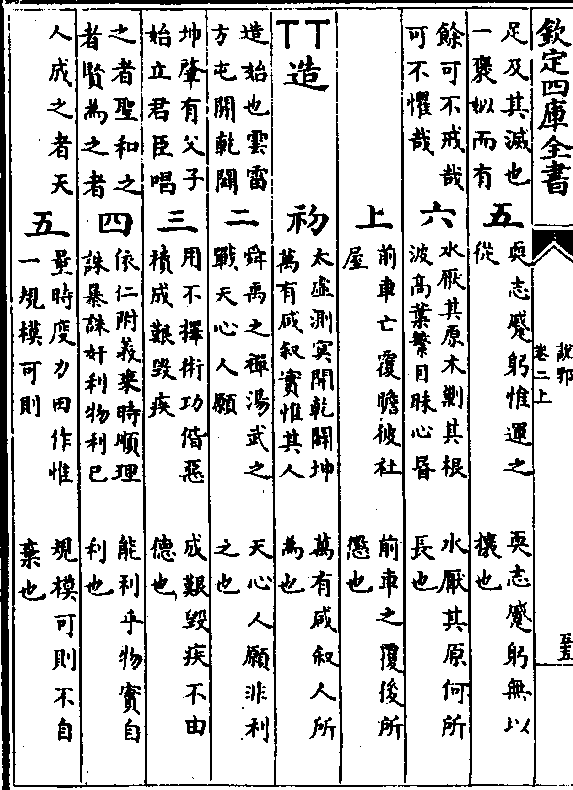 欽定四庫全書
說郛
卷二上
足及其滅也
一褒姒而有
五
耎志蹙躬惟運之
從
耎志蹙躬無以
攘也
餘可不戒哉
可不懼哉
六
水厭其原木剿其根
波高葉繁目眛心昏
水厭其原何所
長也
上
前車亡覆瞻彼社
屋
前車之覆後所
懲也
丅丅造
初
太虛測冥開乾闢坤
萬有咸叙實惟其人
萬有咸叙人所
為也
造始也雲雷
方屯開乾闢
二
舜禹之禪湯武之
戰天心人願
天心人願非利
之也
坤肇有父子
始立君臣唱
三
用不擇術功偕惡
積成艱毀疾
成艱毀疾不由
德也
之者聖和之
者賢為之者
四
依仁附義乘時順理
誅暴誅奸利物利已
能利乎物實自
利也
人成之者天
五
量時度力因作惟
一規模可則
規模可則不自
棄也